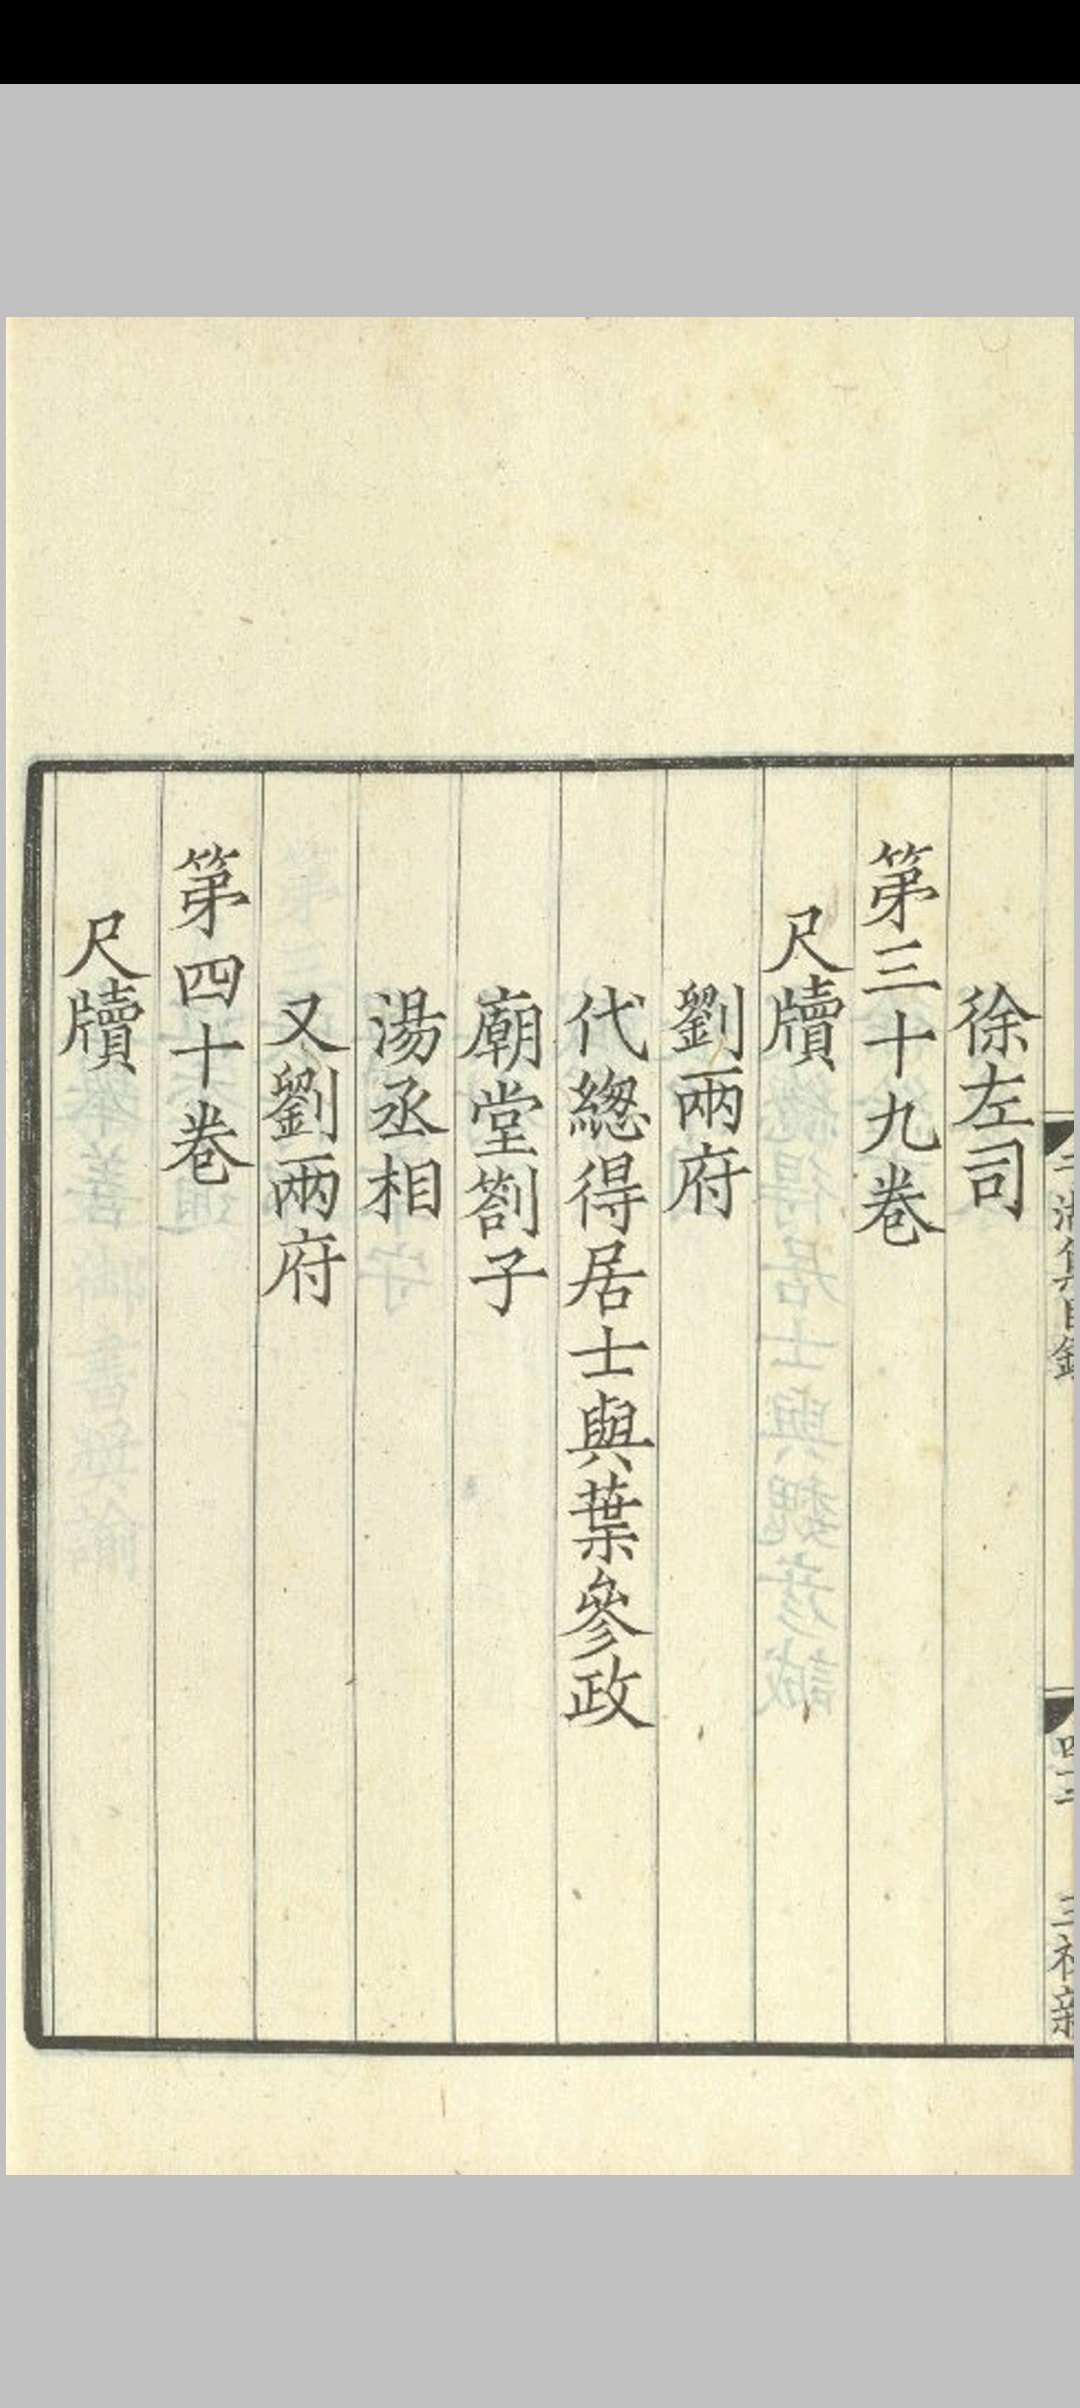 徐左司
第三十九卷
尺牘
劉兩府
代緫得居士與葉參政
廟堂劄子
湯丞相
又劉兩府
第四十卷
尺牘